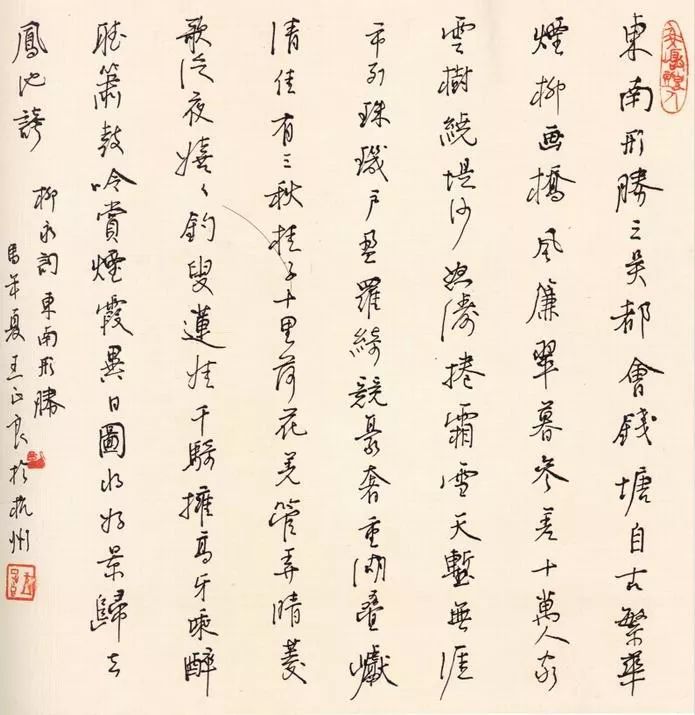 東南形勝三吳都會錢塘自古繁華
煙柳画橋風簾翠暮參差十萬人家
雲樹繞堤沙怒濤捲霜雪天塹無涯
市列珠璣戶盈羅綺競豪奢重湖疊巘
清佳有三秋桂子十里荷花羌管弄晴菱
歌泛夜嬉々釣叟蓮娃千騎擁高牙乘醉
聽簫鼓吟賞煙霞異日圖將好景歸去
鳳池誇
柳永詞 東南形勝
馬年夏王正良於杭州